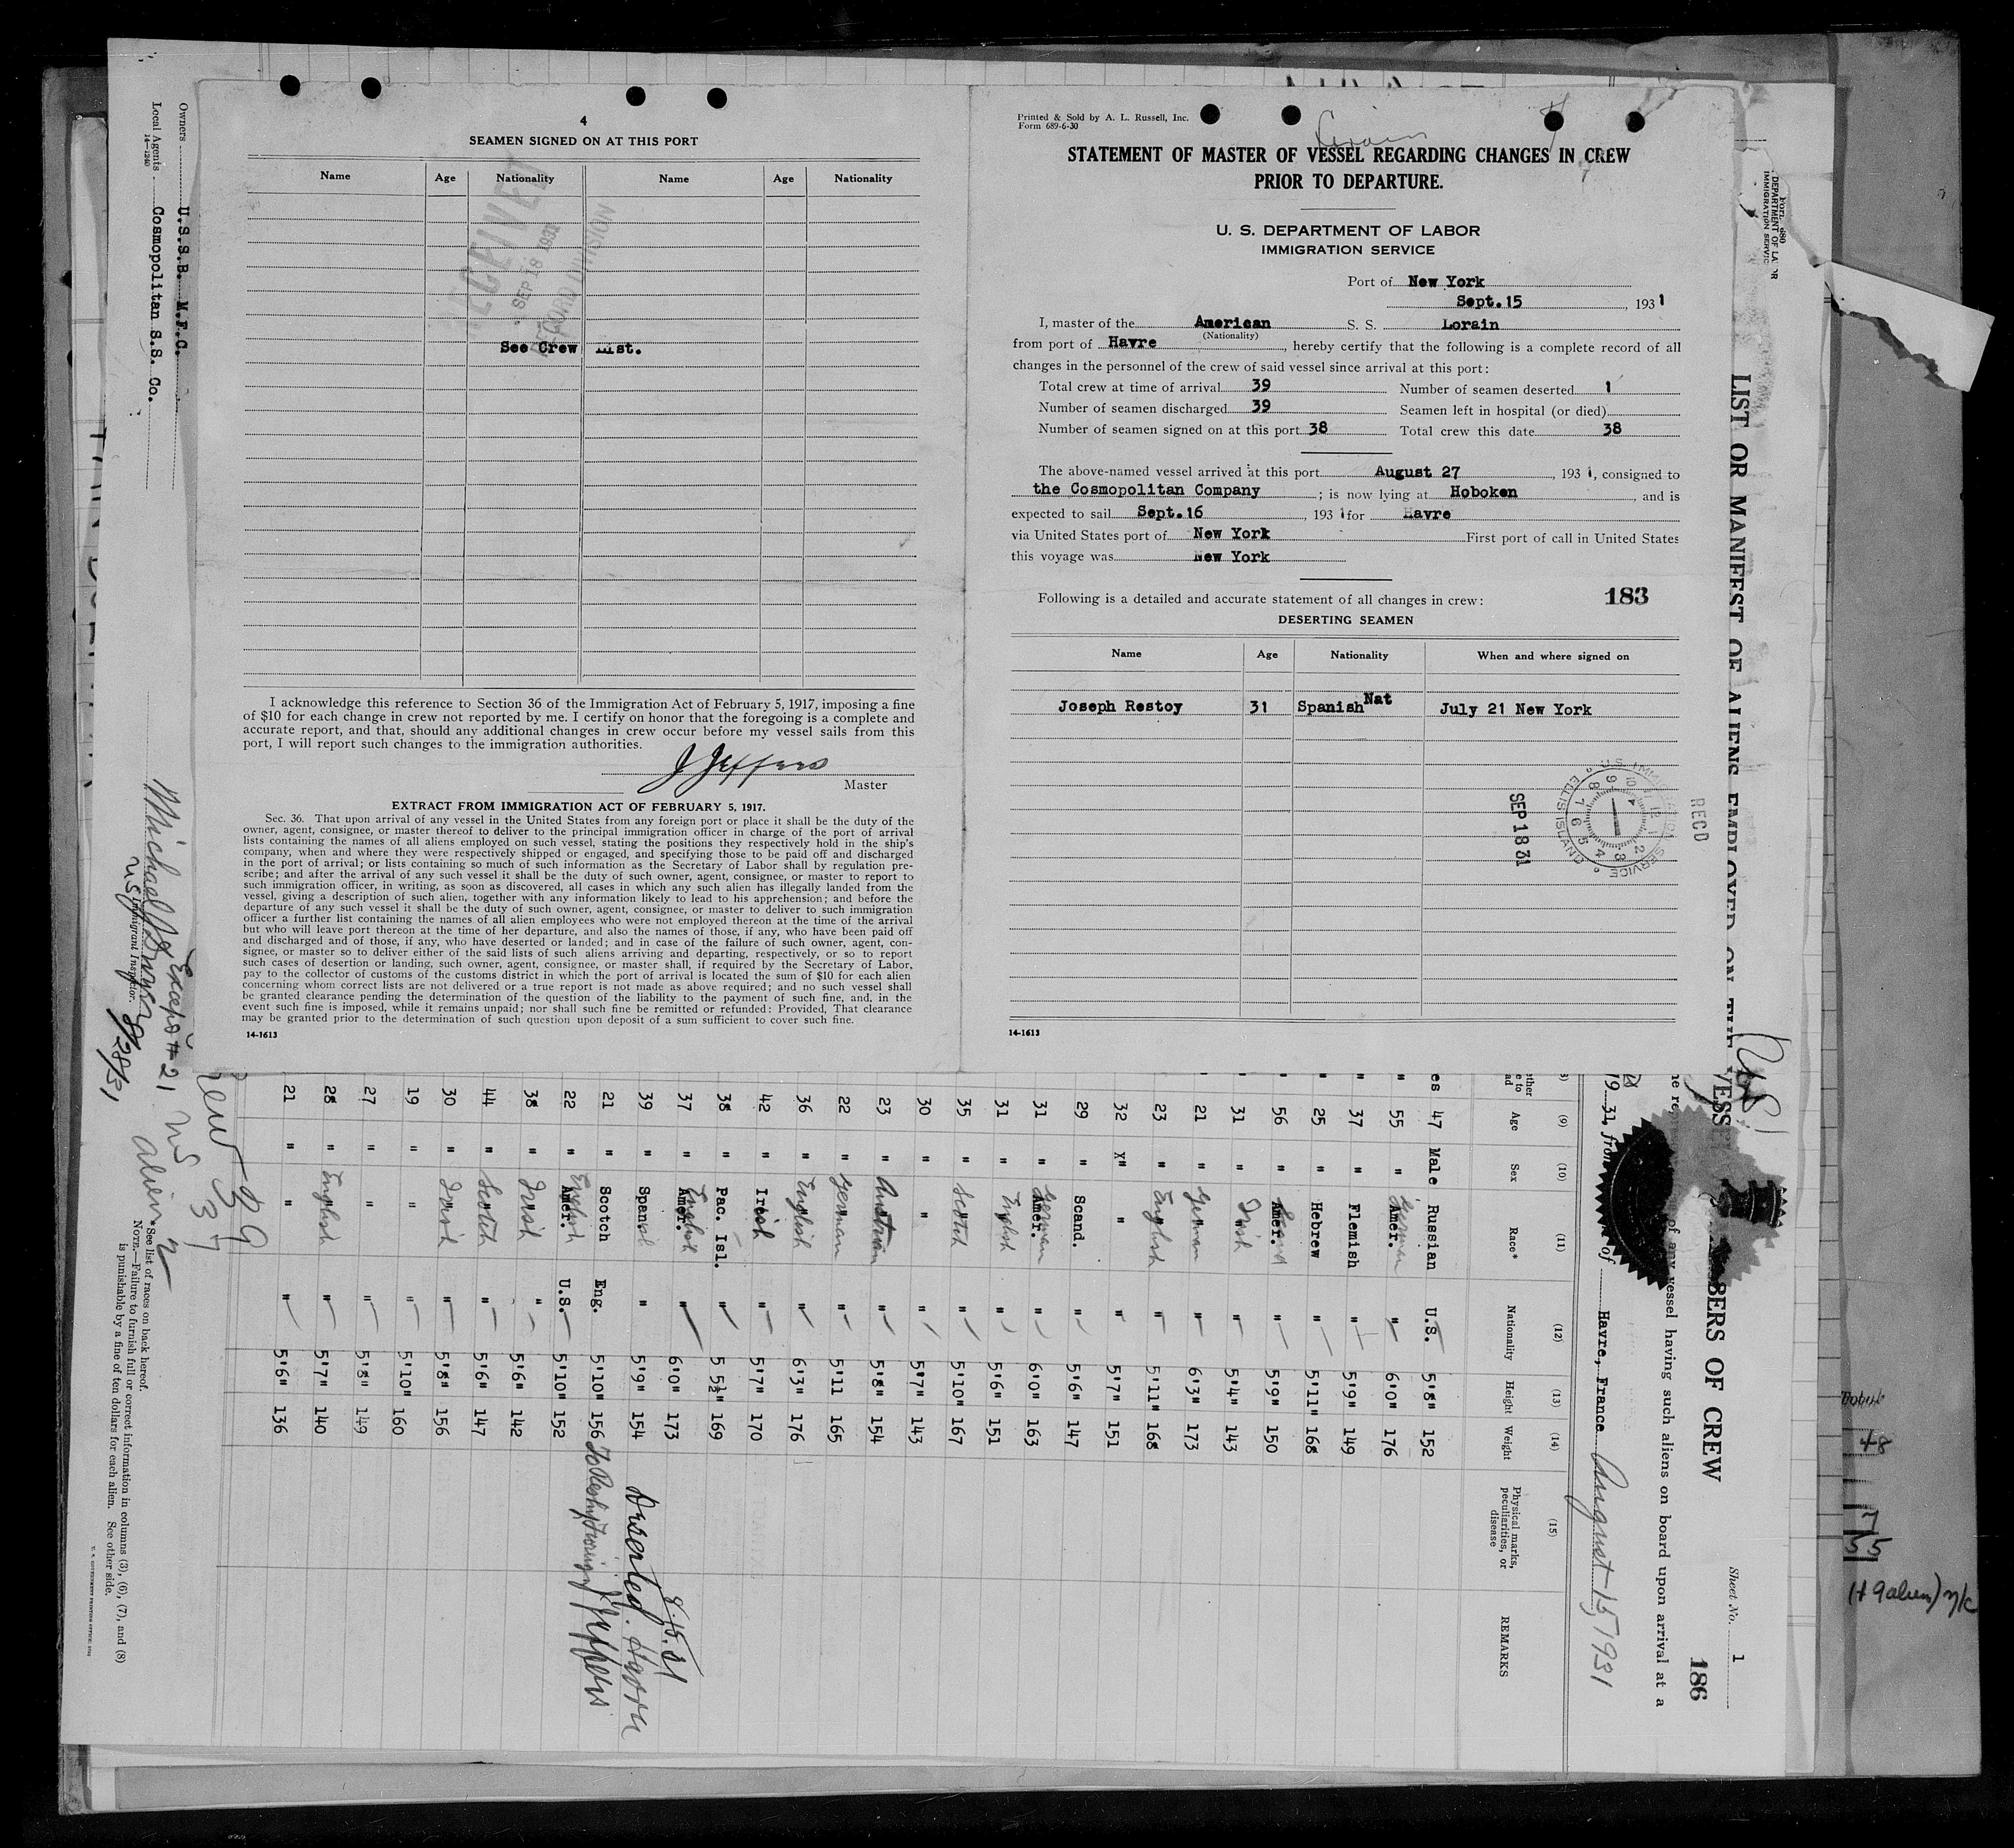 4
SEAMEN SIGNED ON AT THIS PORT
Name Age Nationality Name Age Nationality
RECEIVED
SEP 18 1931
RECORD DIVISION
See Crew List.
I acknowledge this reference to Section 36 of the Immigration Act of February 5, 1917, imposing a fine
of $10 for each change in crew not reported by me. I certify on honor that the foregoing is a complete and
accurate report, and that, should any additional changes in crew occur before my vessel sails from this
port, I will report such changes to the immigration authorities.
J Jeffers
Master
EXTRACT FROM IMMIGRATION ACT OF FEBRUARY 5, 1917.
Sec. 36. That upon arrival of any vessel in the United States from any foreign port or place it shall be the duty of the
owner, agent, consignee, or master thereof to deliver to the principal immigration officer in charge of the port of arrival
lists containing the names of all aliens employed on such vessel, stating the positions they respectively hold in the ship's
company, when and where they were respectively shipped or engaged, and specifying those to be paid off and discharged
in the port of arrival; or lists containing so much of such information as the Secretary of Labor shall by regulation pre-
scribe; and after the arrival of any such vessel it shall be the duty of such owner, agent, consignee, or master to report to
such immigration officer, in writing, as soon as discovered, all cases in which any such alien has illegally landed from the
vessel, giving a description of such alien, together with any information likely to lead to his apprehension; and before the
departure of any such vessel it shall be the duty of such owner, agent, consignee, or master to deliver to such immigration
officer a further list containing the names of all alien employees who were not employed thereon at the time of the arrival
but who will leave port thereon at the time of her departure, and also the names of those, if any, who have been paid off
and discharged and of those, if any, who have deserted or landed; and in case of the failure of such owner, agent, con-
signee, or master so to deliver either of the said lists of such aliens arriving and departing, respectively, or so to report
such cases of desertion or landing, such owner, agent, consignee, or master shall, if required by the Secretary of Labor,
pay to the collector of customs of the customs district in which the port of arrival is located the sum of $10 for each alien
concerning whom correct lists are not delivered or a true report is not made as above required; and no such vessel shall
be granted clearance pending the determination of the question of the liability to the payment of such fine, and, in the
event such fine is imposed, while it remains unpaid; nor shall such fine be remitted or refunded: Provided, That clearance
may be granted prior to the determination of such question upon deposit of a sum sufficient to cover such fine.
14-1613
Printed & Sold by A. L. Russell, Inc.
Form 689-6-30
Lorain
STATEMENT OF MASTER OF VESSEL REGARDING CHANGES IN CREW
PRIOR TO DEPARTURE.
U. S. DEPARTMENT OF LABOR
IMMIGRATION SERVICE
Port of New York
Sept.15, 1931
I, master of the American S. S. Lorain
(Nationality)
from port of Havre, hereby certify that the following is a complete record of all
changes in the personnel of the crew of said vessel since arrival at this port:
Total crew at time of arrival 39 Number of seamen deserted 1
Number of seamen discharged 39 Seamen left in hospital (or died)
Number of seamen signed on at this port 38 Total crew this date 38
The above-named vessel arrived at this port August 27, 1931, consigned to
the Cosmopolitan Company; is now lying at Hoboken, and is
expected to sail Sept.16, 1931 for Havre
via United States port of New York First port of call in United States
this voyage was New York
Following is a detailed and accurate statement of all changes in crew: 183
DESERTING SEAMEN
Name Age Nationality When and where signed on
Joseph Restoy 31 Spanish Nat July 21 New York
SEP 18 31
U.S. IMMIGRATION SERVICE ELLIS ISLAND
RECD
14-1613
Owners U.S.S.B. M.F.C.
Local Agents Cosmopolitan S.S. Co.
14-1240
Except # 21
Immigrant Inspector.
8/28/31
Crew 39
US 37
Alien 2
*See list of races on back hereof.
NOTE.—Failure to furnish full or correct information in columns (3), (6), (7), and (8)
is punishable by a fine of ten dollars for each alien. See other side.
Form 680
DEPARTMENT OF LABOR
IMMIGRATION SERVICE
LIST OR MANIFEST OF ALIENS EMPLOYED ON THE VESSEL
BERS OF CREW
Sheet No. 1
186
of any vessel having such aliens on board upon arrival at a
1931, from Havre, France August 15, 1931
(9) (10) (11) (12) (13) (14) (15)
Age Sex Race* Nationality Height Weight Physical marks, peculiarities, or disease REMARKS
47 Male Russian U.S. 5'8" 152
55 " Amer. German " 6'0" 176
37 " Flemish " 5'9" 149
25 " Hebrew " 5'11" 168
56 " Amer. " 5'9" 150
31 " Irish " 5'4" 143
21 " German " 6'3" 173
23 " English " 5'11" 168
32 x" " " 5'7" 151
29 " Scand. " 5'6" 147
31 " Amer. German " 6'0" 163
31 " English " 5'6" 151
35 " Scotch " 5'10" 167
30 " " " 5'7" 143
23 " Austrian " 5'8" 154
22 " German " 5'11 165
36 " English " 6'3" 176
42 " Irish " 5'7" 170
38 " Pac. Isl. " 5 5½" 169
37 " Amer. English " 6'0" 173
39 " Spanish " 5'9" 154 Deserted. 8.15.31
21 " Scotch Eng. 5'10" 156 J Jeffers
22 " Amer. English U.S. 5'10" 152
38 " Irish " 5'6" 142
44 " Scotch " 5'6" 147
30 " Irish " 5'8" 156
19 " " " 5'10" 160
27 " " " 5'8" 149
28 " English " 5'7" 140
21 " " " 5'6" 136
48
7
55